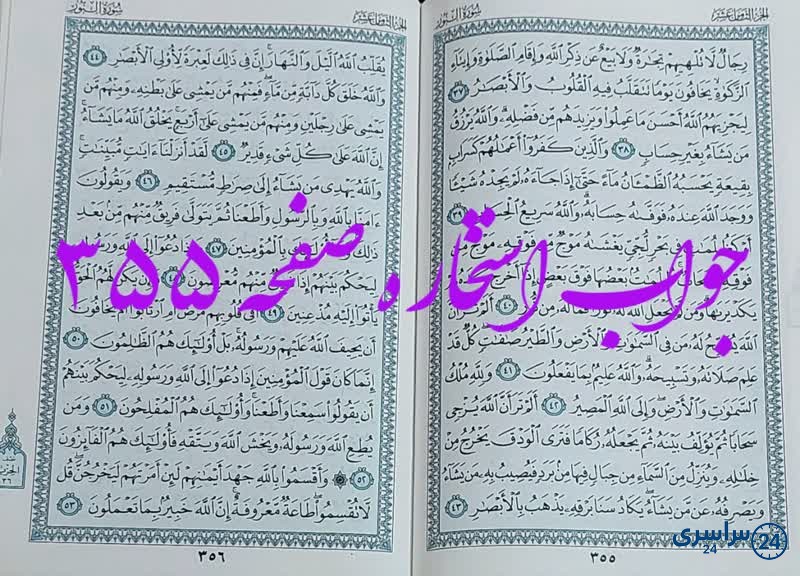 سُورَةُ النُّورِ
الجُزْءُ الثَّامِنَ عَشَرَ
رِجَالٌ لَّا تُلْهِيهِمْ تِجَٰرَةٌ وَلَا بَيْعٌ عَن ذِكْرِ ٱللَّهِ وَإِقَامِ ٱلصَّلَوٰةِ وَإِيتَآءِ
ٱلزَّكَوٰةِ يَخَافُونَ يَوْمًا تَتَقَلَّبُ فِيهِ ٱلْقُلُوبُ وَٱلْأَبْصَٰرُ ٣٧
لِيَجْزِيَهُمُ ٱللَّهُ أَحْسَنَ مَا عَمِلُوا۟ وَيَزِيدَهُم مِّن فَضْلِهِۦ وَٱللَّهُ يَرْزُقُ
مَن يَشَآءُ بِغَيْرِ حِسَابٍ ٣٨ وَٱلَّذِينَ كَفَرُوٓا۟ أَعْمَٰلُهُمْ كَسَرَابٍۭ
بِقِيعَةٍ يَحْسَبُهُ ٱلظَّمْـَٔانُ مَآءً حَتَّىٰٓ إِذَا جَآءَهُۥ لَمْ يَجِدْهُ شَيْـًٔا
وَوَجَدَ ٱللَّهَ عِندَهُۥ فَوَفَّىٰهُ حِسَابَهُۥ وَٱللَّهُ سَرِيعُ ٱلْحِسَابِ ٣٩
أَوْ كَظُلُمَٰتٍ فِى بَحْرٍ لُّجِّىٍّ يَغْشَىٰهُ مَوْجٌ مِّن فَوْقِهِۦ مَوْجٌ مِّن
فَوْقِهِۦ سَحَابٌ ظُلُمَٰتٌۢ بَعْضُهَا فَوْقَ بَعْضٍ إِذَآ أَخْرَجَ
يَكَدْ يَرَىٰهَا وَمَن لَّمْ يَجْعَلِ ٱللَّهُ لَهُۥ نُورًا فَمَا لَهُۥ مِن نُّورٍ ٤٠ أَلَمْ تَرَ أَنَّ
ٱللَّهَ يُسَبِّحُ لَهُۥ مَن فِى ٱلسَّمَٰوَٰتِ وَٱلْأَرْضِ وَٱلطَّيْرُ صَٰٓفَّٰتٍ كُلٌّ قَدْ
عَلِمَ صَلَاتَهُۥ وَتَسْبِيحَهُۥ وَٱللَّهُ عَلِيمٌۢ بِمَا يَفْعَلُونَ ٤١ وَلِلَّهِ مُلْكُ
ٱلسَّمَٰوَٰتِ وَٱلْأَرْضِ وَإِلَى ٱللَّهِ ٱلْمَصِيرُ ٤٢ أَلَمْ تَرَ أَنَّ ٱللَّهَ يُزْجِى
سَحَابًا ثُمَّ يُؤَلِّفُ بَيْنَهُۥ ثُمَّ يَجْعَلُهُۥ رُكَامًا فَتَرَى ٱلْوَدْقَ يَخْرُجُ مِنْ
خِلَٰلِهِۦ وَيُنَزِّلُ مِنَ ٱلسَّمَآءِ مِن جِبَالٍ فِيهَا مِنۢ بَرَدٍ فَيُصِيبُ بِهِۦ مَن يَشَآءُ
وَيَصْرِفُهُۥ عَن مَّن يَشَآءُ يَكَادُ سَنَا بَرْقِهِۦ يَذْهَبُ بِٱلْأَبْصَٰرِ ٤٣
٣٥٥
سُورَةُ النُّورِ
الجُزْءُ الثَّامِنَ عَشَرَ
يُقَلِّبُ ٱللَّهُ ٱلَّيْلَ وَٱلنَّهَارَ إِنَّ فِى ذَٰلِكَ لَعِبْرَةً لِّأُو۟لِى ٱلْأَبْصَٰرِ ٤٤
وَٱللَّهُ خَلَقَ كُلَّ دَآبَّةٍ مِّن مَّآءٍ فَمِنْهُم مَّن يَمْشِى عَلَىٰ بَطْنِهِۦ وَمِنْهُم مَّن
يَمْشِى عَلَىٰ رِجْلَيْنِ وَمِنْهُم مَّن يَمْشِى عَلَىٰٓ أَرْبَعٍ يَخْلُقُ ٱللَّهُ مَا يَشَآءُ
إِنَّ ٱللَّهَ عَلَىٰ كُلِّ شَىْءٍ قَدِيرٌ ٤٥ لَّقَدْ أَنزَلْنَآ ءَايَٰتٍ مُّبَيِّنَٰتٍ
وَٱللَّهُ يَهْدِى مَن يَشَآءُ إِلَىٰ صِرَٰطٍ مُّسْتَقِيمٍ ٤٦ وَيَقُولُونَ
ءَامَنَّا بِٱللَّهِ وَبِٱلرَّسُولِ وَأَطَعْنَا ثُمَّ يَتَوَلَّىٰ فَرِيقٌ مِّنْهُم مِّنۢ بَعْدِ
ذَٰلِكَ بِٱلْمُؤْمِنِينَ ٤٧ دُعُوٓا۟ إِلَى ٱللَّهِ وَرَسُولِهِۦ
لِيَحْكُمَ بَيْنَهُمْ إِذَا مِّنْهُم مُّعْرِضُونَ ٤٨ يَكُن لَّهُمُ ٱلْحَقُّ
يَأْتُوٓا۟ إِلَيْهِ مُذْعِنِينَ ٤٩ أَفِى قُلُوبِهِم مَّرَضٌ أَمِ ٱرْتَابُوٓا۟ أَمْ يَخَافُونَ
أَن يَحِيفَ ٱللَّهُ عَلَيْهِمْ وَرَسُولُهُۥ بَلْ أُو۟لَٰٓئِكَ هُمُ ٱلظَّٰلِمُونَ ٥٠
إِنَّمَا كَانَ قَوْلَ ٱلْمُؤْمِنِينَ إِذَا دُعُوٓا۟ إِلَى ٱللَّهِ وَرَسُولِهِۦ لِيَحْكُمَ بَيْنَهُمْ
أَن يَقُولُوا۟ سَمِعْنَا وَأَطَعْنَا وَأُو۟لَٰٓئِكَ هُمُ ٱلْمُفْلِحُونَ ٥١ وَمَن
يُطِعِ ٱللَّهَ وَرَسُولَهُۥ وَيَخْشَ ٱللَّهَ وَيَتَّقْهِ فَأُو۟لَٰٓئِكَ هُمُ ٱلْفَآئِزُونَ
٥٢ ۞ وَأَقْسَمُوا۟ بِٱللَّهِ جَهْدَ أَيْمَٰنِهِمْ لَئِنْ أَمَرْتَهُمْ لَيَخْرُجُنَّ قُل
لَّا تُقْسِمُوا۟ طَاعَةٌ مَّعْرُوفَةٌ إِنَّ ٱللَّهَ خَبِيرٌۢ بِمَا تَعْمَلُونَ ٥٣
٣٥٦
جواب استخاره صفحه ۳۵۵
سراسری 24
24